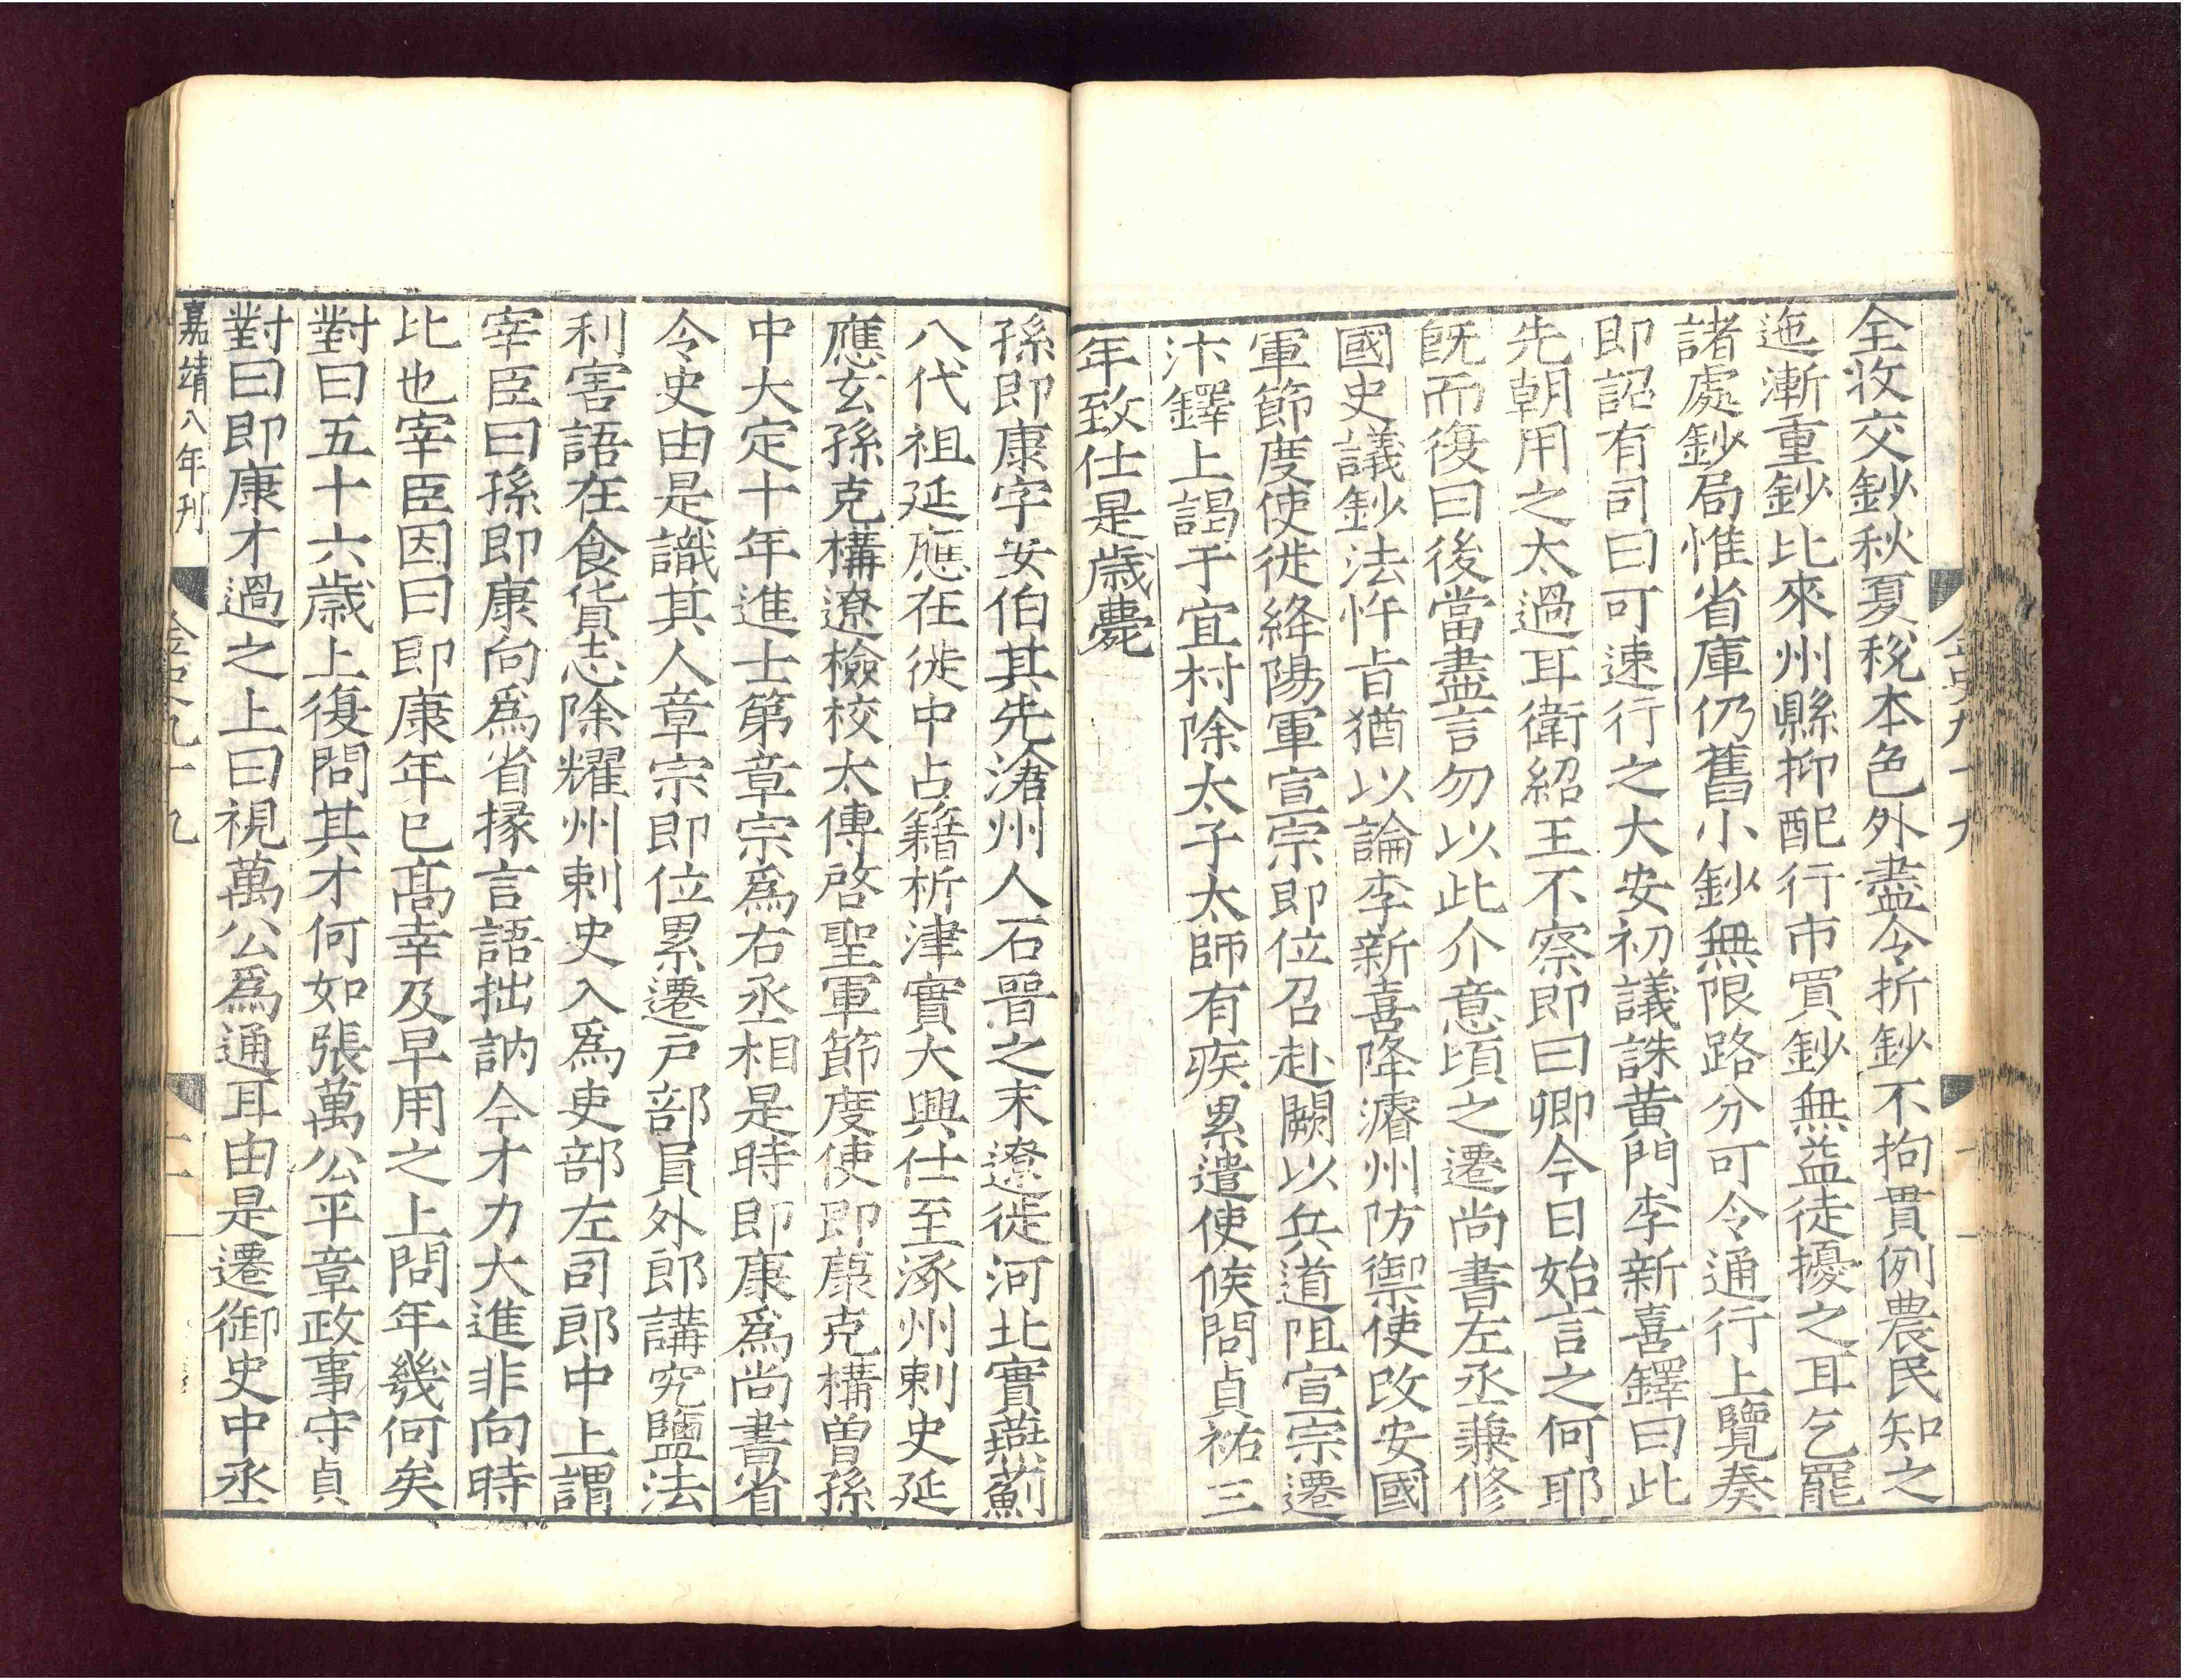 金史九十九
全收交鈔秋夏稅本色外盡令折鈔不拘貫例農民知之
迤漸重鈔比來州縣抑配行市買鈔無益徒擾之耳乞罷
諸處鈔局惟省庫仍舊小鈔無限路分可令通行上覽奏
即詔有司曰可速行之大安初議誅黃門李新喜鐸曰此
先朝用之太過耳衛紹王不察即曰卿今日始言之何耶
旣而復曰後當盡言勿以此介意頃之遷尚書左丞兼修
國史議鈔法忤旨猶以論李新喜降濬州防禦使改安國
軍節度使徙絳陽軍宣宗即位召赴闕以兵道阻宣宗遷
汴鐸上謁于宜村除太子太師有疾累遣使候問貞祐三
年致仕是歲薨
孫即康字安伯其先滄州人石晉之末遼徙河北實燕薊
八代祖延應在徙中占籍析津實大興仕至涿州刺史延
應玄孫克構遼檢校太傅啓聖軍節度使即康克構曽孫
中大定十年進士第章宗爲右丞相是時即康爲尚書省
令史由是識其人章宗即位累遷戶部員外郎講究鹽法
利害語在食貨志除耀州刺史入爲吏部左司郎中上謂
宰臣曰孫即康向爲省掾言語拙訥今才力大進非向時
比也宰臣因曰即康年已高幸及早用之上問年幾何矣
對曰五十六歲上復問其才何如張萬公平章政事守貞
對曰即康才過之上曰視萬公爲通耳由是遷御史中丞
嘉靖八年刊
金史九十九
十二